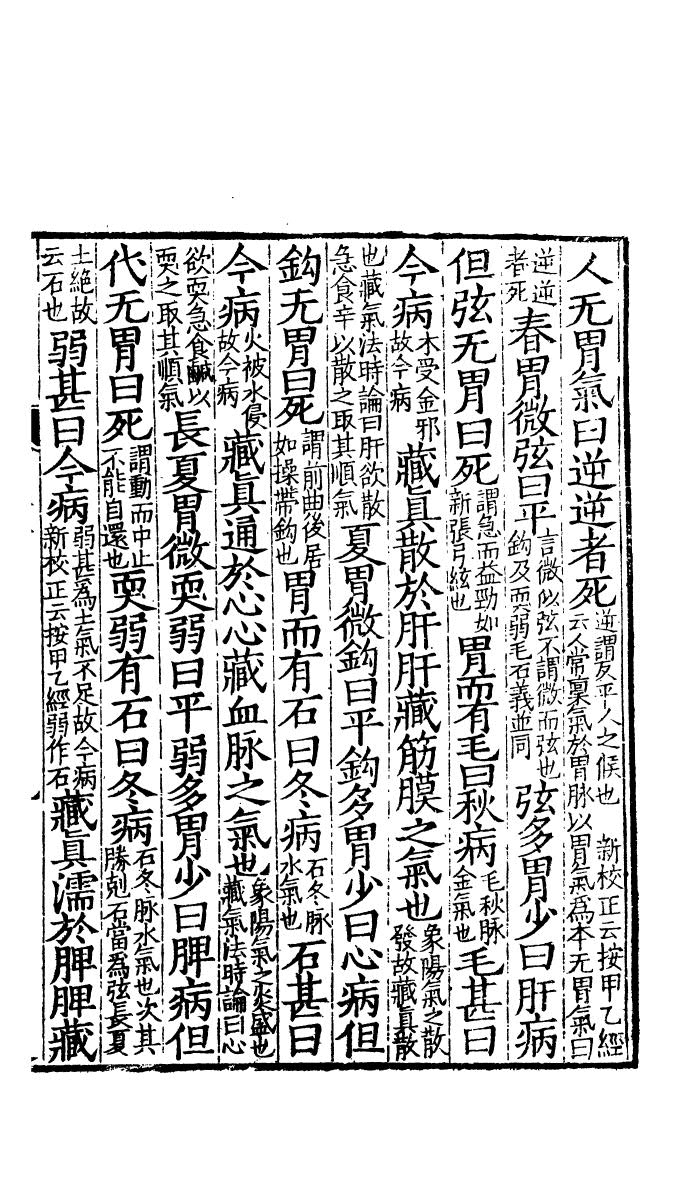 人无胃氣曰逆逆者死逆謂反平人之候也　新校正云按甲乙經云人常禀氣於胃脉以胃氣爲本无胃氣曰
逆逆者死春胃微弦曰平言微似弦不謂微而弦也鈎及耎弱毛石義並同弦多胃少曰肝病
但弦无胃曰死謂急而益勁如新張弓絃也胃而有毛曰秋病毛秋脉金氣也毛甚曰
今病木受金邪故今病藏眞散於肝肝藏筋膜之氣也象陽氣之散發故藏眞散
也藏氣法時論曰肝欲散急食辛以散之取其順氣夏胃微鈎曰平鈎多胃少曰心病但
鈎无胃曰死謂前曲後居如操帶鈎也胃而有石曰冬病石冬脉水氣也石甚曰
今病火被水侵故今病藏眞通於心心藏血脉之氣也象陽氣之炎盛也藏氣法時論曰心
欲耎急食鹹以耎之取其順氣長夏胃微耎弱曰平弱多胃少曰脾病但
代无胃曰死謂動而中止不能自還也耎弱有石曰冬病石冬脉水氣也次其勝剋石當爲弦長夏
土絶故云石也弱甚曰今病弱甚爲土氣不足故今病新校正云按甲乙經弱作石藏眞濡於脾脾藏